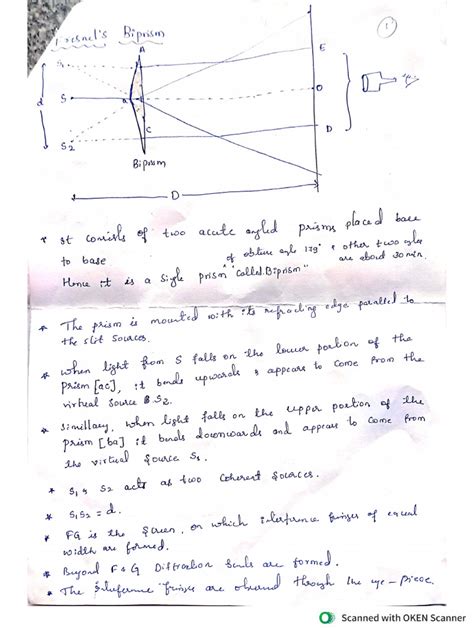 Fresnel's Biprism
1
A
E
S1
b
d
S
a
O
C
S2
D
Biprism
D
* It consists of two acute angled prisms placed base
to base of obtuse angle 179° & other two angles
Hence it is a Single prism "Called Biprism" are about 30 min.
* The prism is mounted with its refracting edge parallel to
the slit sources.
* when light from S falls on the lower portion of the
prism [ac], it bends upwards & appears to come from the
virtual source S2.
* Simillary, when light falls on the upper portion of the
prism [ba] it bends downwards and appears to come from
the virtual source S1.
* S1 & S2 acts as two Coherent Sources.
* S1S2 = d.
* FG is the Screen, on which interference fringes of equal
width are formed.
* Beyond F & G Diffraction bands are formed.
* The interference fringes are observed through the eye-piece.
Scanned with OKEN Scanner